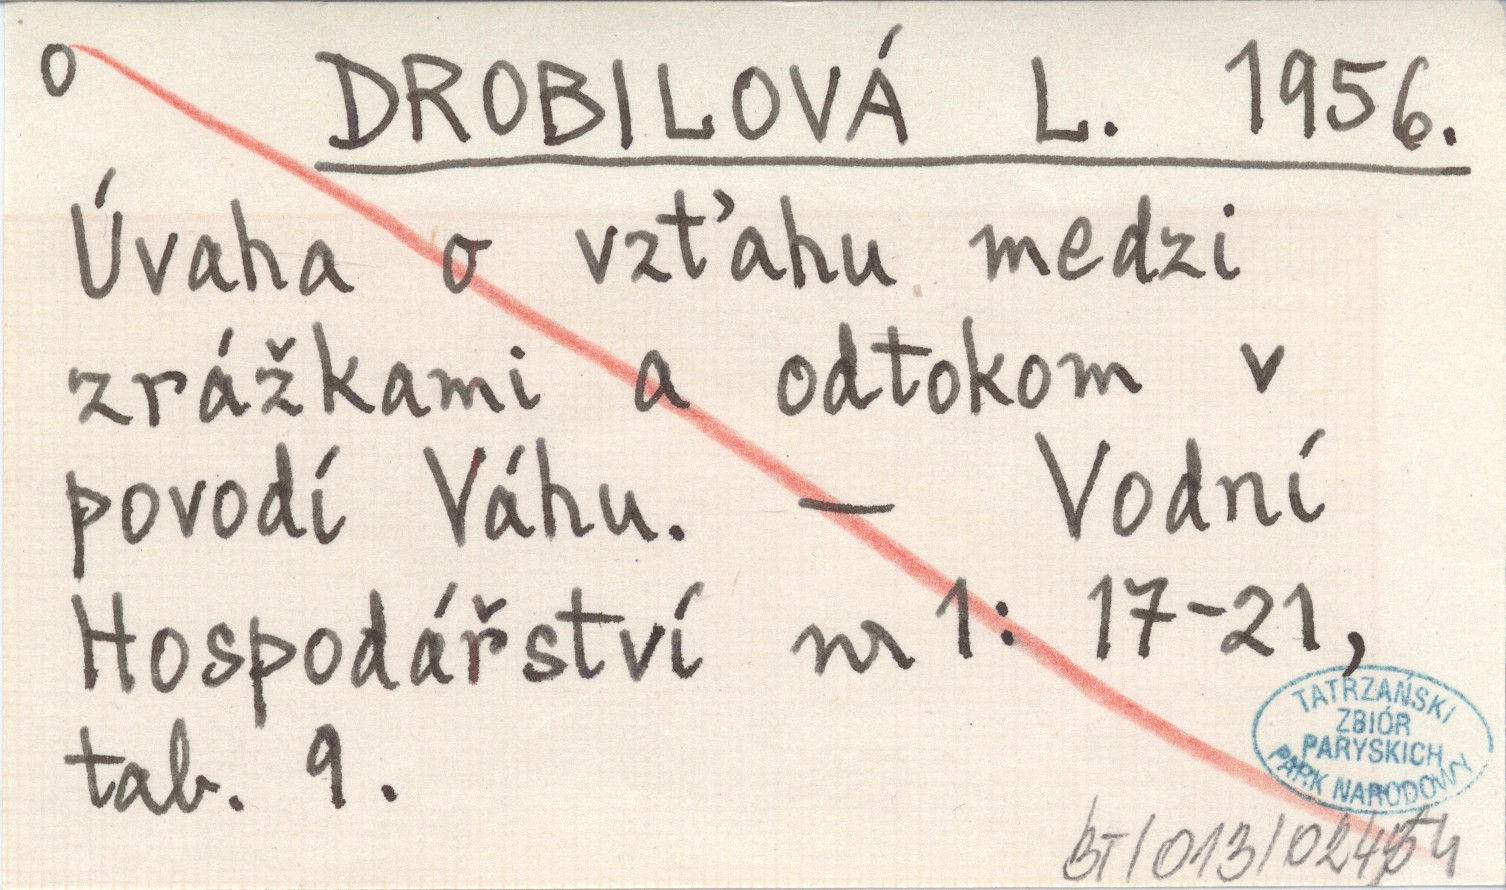 o DROBILOVÁ L. 1956.
Úvaha o vzťahu medzi
zrážkami a odtokom v
povodí Váhu. — Vodní
Hospodářství nr 1: 17-21,
tab. 9.
TATRZAŃSKI
ZBIÓR
PARYSKICH
PARK NARODOWY
BT/013/